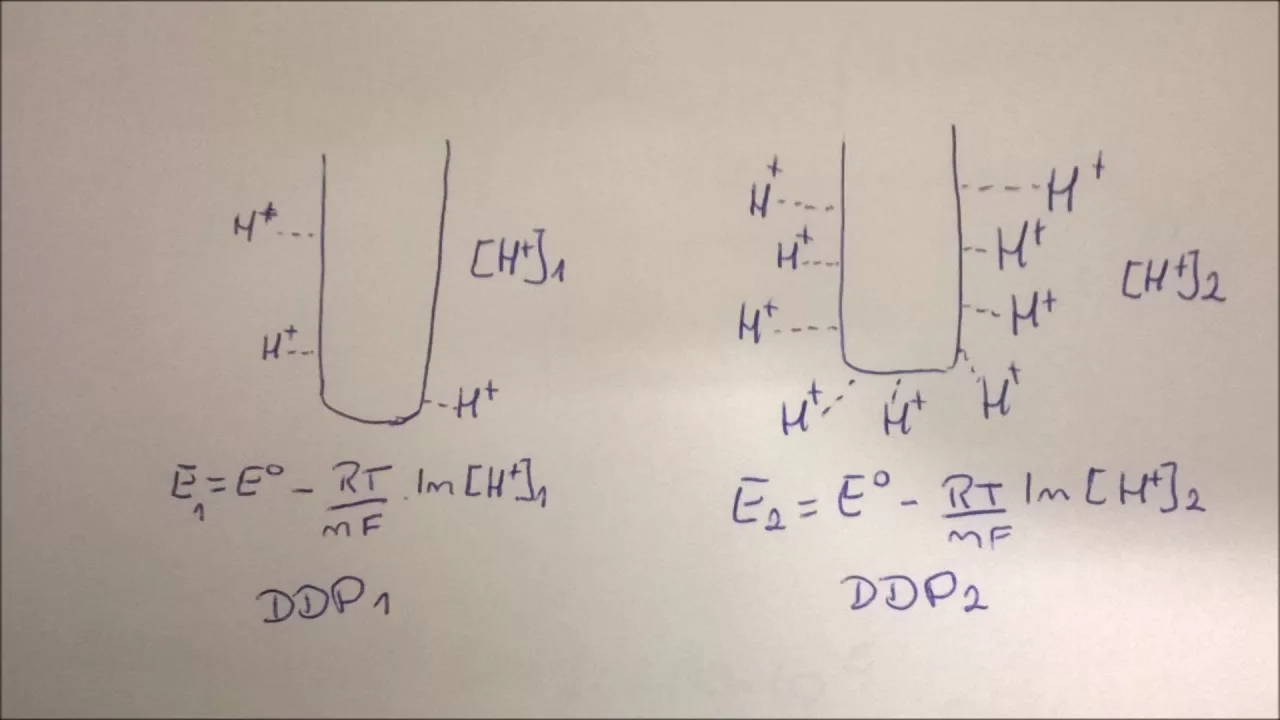 H⁺
H⁺
H⁺
[H⁺]₁
E₁ = E⁰ - RT/nF . ln [H⁺]₁
DDP₁
H⁺
H⁺
H⁺
H⁺
H⁺
H⁺
H⁺
H⁺
H⁺
[H⁺]₂
E₂ = E⁰ - RT/nF ln [H⁺]₂
DDP₂